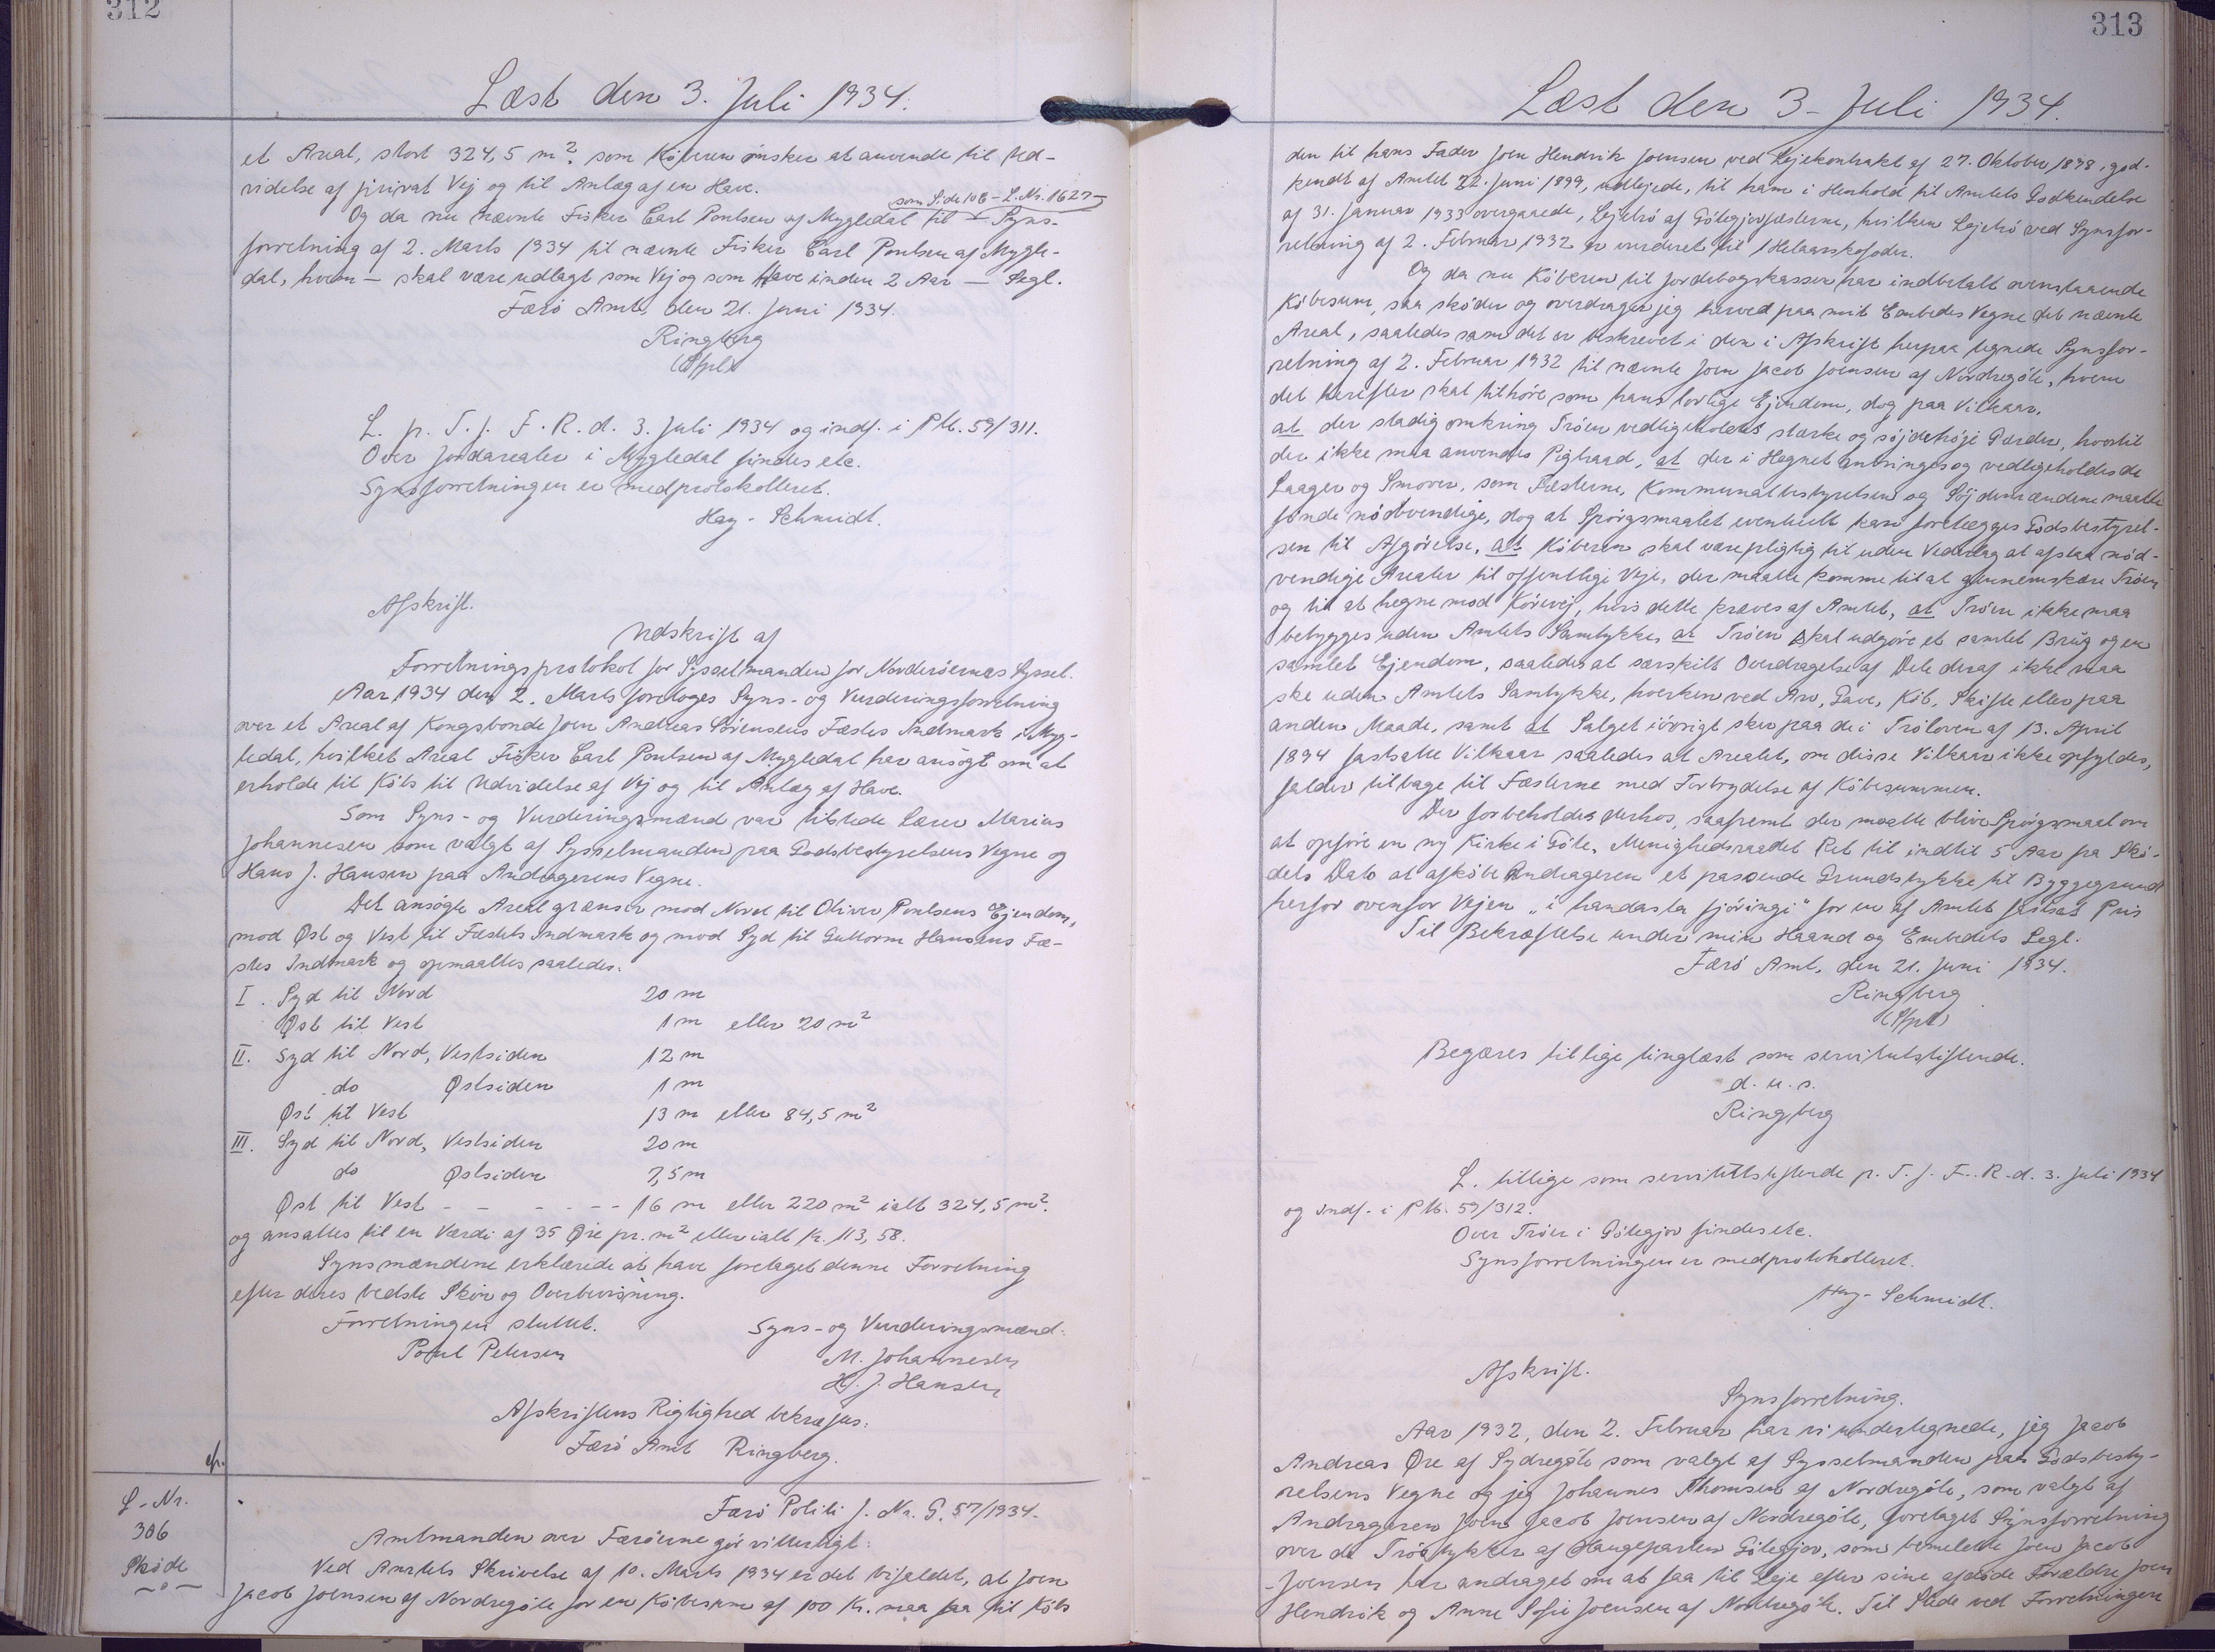 312
Læst den 3. Juli 1934.
et Areal, stort 324,5 m². som Köberen ønsker at anvende til Ud-
videlse af privat Vej og til Anlæg af en Have.
som S. de 106 - L. Nr. 1627 -
Og da nu nævnte Fisker Carl Poulsen af Mygledal til - Syns-
forretning af 2. Marts 1934 til nævnte Fisker Carl Poulsen af Mygle-
dal, hvem - skal være udlagt som Vej og som Have inden 2 Aar - Segl.
Færö Amt, den 21. Juni 1934.
Ringberg
L. p. T. f. F. R. d. 3. Juli 1934 og indf. i Ptk. 59/311.
Over Jordarealer i Mygledal findes etc.
Synsforretningen er medprotokolleret.
Hay-Schmidt.
Afskrift.
Udskrift af
Forretningsprotokol for Sysselmanden for Norderöernes Syssel.
Aar 1934 den 2. Marts foretoges Syns- og Vurderingsforretning
over et Areal af Kongsbonde Joen Andreas Sörensens Fæstes Indmark i Myg-
ledal, hvilket Areal Fisker Carl Poulsen af Mygledal har ansøgt om at
erholde til Köbs til Udvidelse af Vej og til Anlæg af Have.
Som Syns- og Vurderingsmænd var tilstede Lærer Marius
Johannesen som valgt af Sysselmanden paa Godsbestyrelsens Vegne og
Hans J. Hansen paa Andragerens Vegne.
Det ansøgte Areal grænser mod Nord til Oliver Poulsens Ejendom,
mod Øst og Vest til Fæstets Indmark og mod Syd til Guttorm Hansens Fæ-
stes Indmark og opmaaltes saaledes:
I. Syd til Nord 20 m
Øst til Vest 1 m eller 20 m²
II. Syd til Nord, Vestsiden 12 m
do Østsiden 1 m
Øst til Vest 13 m eller 84,5 m²
III. Syd til Nord, Vestsiden 20 m
do Østsiden 7,5 m
Øst til Vest - - - - - - 16 m eller 220 m² ialt 324,5 m².
og ansattes til en Værdi af 35 Øre pr. m² eller ialt Kr. 113,58.
Synsmændene erklærede at have foretaget denne Forretning
efter deres bedste Skön og Overbevisning.
Forretningen sluttet. Syns- og Vurderingsmænd:
Poul Petersen M. Johannesen
H. J. Hansen
Afskriftens Rigtighed bekræftes:
Færö Amt Ringberg.
L-Nr.
306
Sköde
Færö Politi J. Nr. G. 57/1934.
Amtmanden over Færöerne gör vitterligt:
Ved Amtets Skrivelse af 10. Marts 1934 er det bifaldet, at Joen
Jacob Joensen af Nordregöte for en Köbesum af 100 Kr. maa faa til Köbs
313
Læst den 3. Juli 1934.
den til hans Fader Joen Hendrik Joensen ved Lejekontrakt af 27. Oktober 1898, god-
kendt af Amtet 22. Juni 1899, udlejede, til ham i Henhold til Amtets Godkendelse
af 31. Januar 1933 overgaaede, Lejetrö af Götegjovfæsterne, hvilken Lejetrö ved Synsfor-
retning af 2. Februar 1932 er vurderet til 1 Helaarskofoder.
Og da nu Köberen til Jordebogskassen har indbetalt ovenstaaende
Köbesum, saa sköder og overdrager jeg herved paa mit Embedes Vegne det nævnte
Areal, saaledes som det er beskrevet i den i Afskrift herpaa tegnede Synsfor-
retning af 2. Februar 1932 til nævnte Joen Jacob Joensen af Nordregöte, hvem
det herefter skal tilhöre som hans lovlige Ejendom, dog paa Vilkaar,
at der stadig omkring Tröen vedligeholdes stærke og söjdehöje Gærder, hvortil
der ikke maa anvendes Pigtraad, at der i Hegnet anbringes og vedligeholdes de
Laager og Smover, som Fæsterne, Kommunalbestyrelsen og Söjdemændene maatte
finde nödvendige, dog at Spörgsmaalet eventuelt kan forelægges Godsbestyrel-
sen til Afgörelse, at Köberen skal være pligtig til uden Vederlag at afstaa nöd-
vendige Arealer til offentlige Veje, der maatte komme til at gennemskære Tröen
og til at hegne mod Körevej, hvis dette kræves af Amtet, at Tröen ikke maa
bebygges uden Amtets Samtykke, at Tröen skal udgöre et samlet Brug og en
samlet Ejendom, saaledes at særskilt Overdragelse af Dele deraf ikke maa
ske uden Amtets Samtykke, hverken ved Arv, Gave, Köb, Skifte eller paa
anden Maade, samt at Salget iövrigt sker paa de i Tröloven af 13. April
1894 fastsatte Vilkaar saaledes at Arealet, om disse Vilkaar ikke opfyldes,
falder tilbage til Fæsterne med Fortrydelse af Köbesummen.
Der forbeholdes derhos, saafremt der maatte blive Spörgsmaal om
at opföre en ny Kirke i Göte, Menighedsraadet Ret til indtil 5 Aar fra Skö-
dets Dato at afköbe Andrageren et passende Grundstykke til Byggegrund
herfor ovenfor Vejen "i handasta fjóringi" for en af Amtet fastsat Pris
Til Bekræftelse under min Haand og Embedets Segl.
Færö Amt, den 21. Juni 1934.
Ringberg
Begæres tillige tinglæst som servitutstiftende.
d. u. s.
Ringberg
L. tillige som servitutstiftende p. T. f. F. R. d. 3. Juli 1934
og indf. i Ptk. 59/312.
Over Tröer i Götegjov findes etc.
Synsforretningen er medprotokolleret.
Hay-Schmidt.
Afskrift.
Synsforretning.
Aar 1932, den 2. Februar har vi undertegnede, jeg Jacob
Andreas Øre af Sydregöte som valgt af Sysselmanden paa Godsbesty-
relsens Vegne og jeg Johannes Thomsen af Nordregöte, som valgt af
Andrageren Joen Jacob Joensen af Nordregöte, foretaget Synsforretning
over de Tröstykker af Haugeparten Götegjov, som bemeldte Joen Jacob
Joensen har andraget om at faa til Leje efter sine afdöde Forældre Joen
Hendrik og Anne Sofie Joensen af Nordregöte. Til Stede ved Forretningen